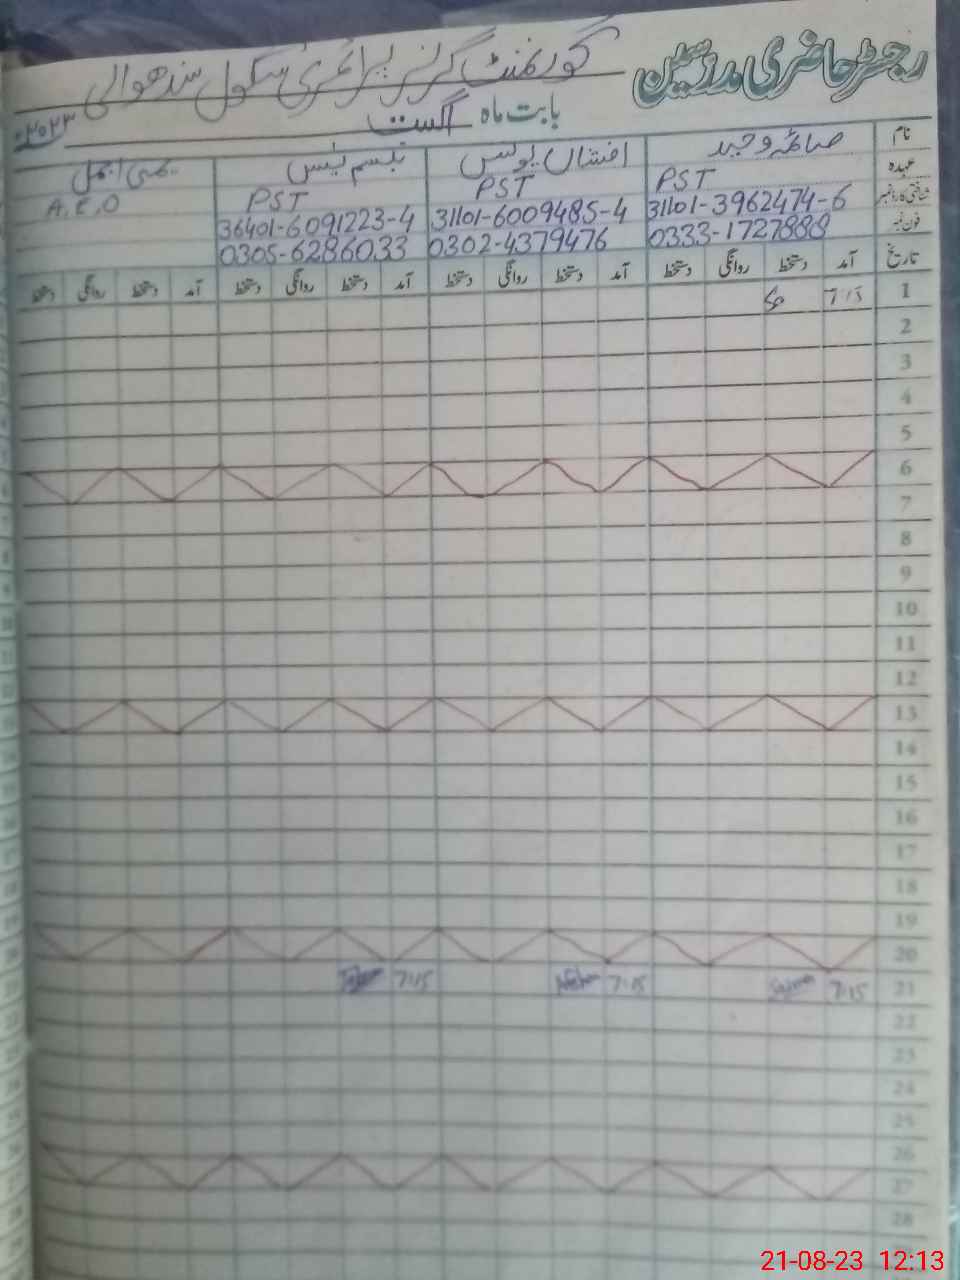 رجسٹر حاضری مدرسین گورنمنٹ گرلز پرائمری سکول سندھوالی
بابت ماہ اگست ۲۰۲۳ء
نام صائمہ وحید افشاں یونس تبسم
عہدہ PST PST PST A.E.O
شناختی کارڈ نمبر 31101-3962474-6 31101-6009485-4 36401-6091223-4
فون نمبر 0333-1727888 0302-4379476 0305-6286033
تاریخ آمد دستخط روانگی دستخط آمد دستخط روانگی دستخط آمد دستخط روانگی دستخط آمد دستخط روانگی دستخط
1 7:15
2
3
4
5
6
7
8
9
10
11
12
13
14
15
16
17
18
19
20
21 7:15 Saima 7:15 7:15
22
23
24
25
26
27
28
21-08-23 12:13